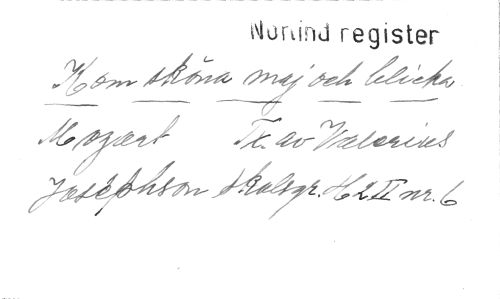 Norlind register
Kom sköna maj och blicka
Mozart Tx. av Valerius
Josephson Skolsgr. H 2 II nr. 6